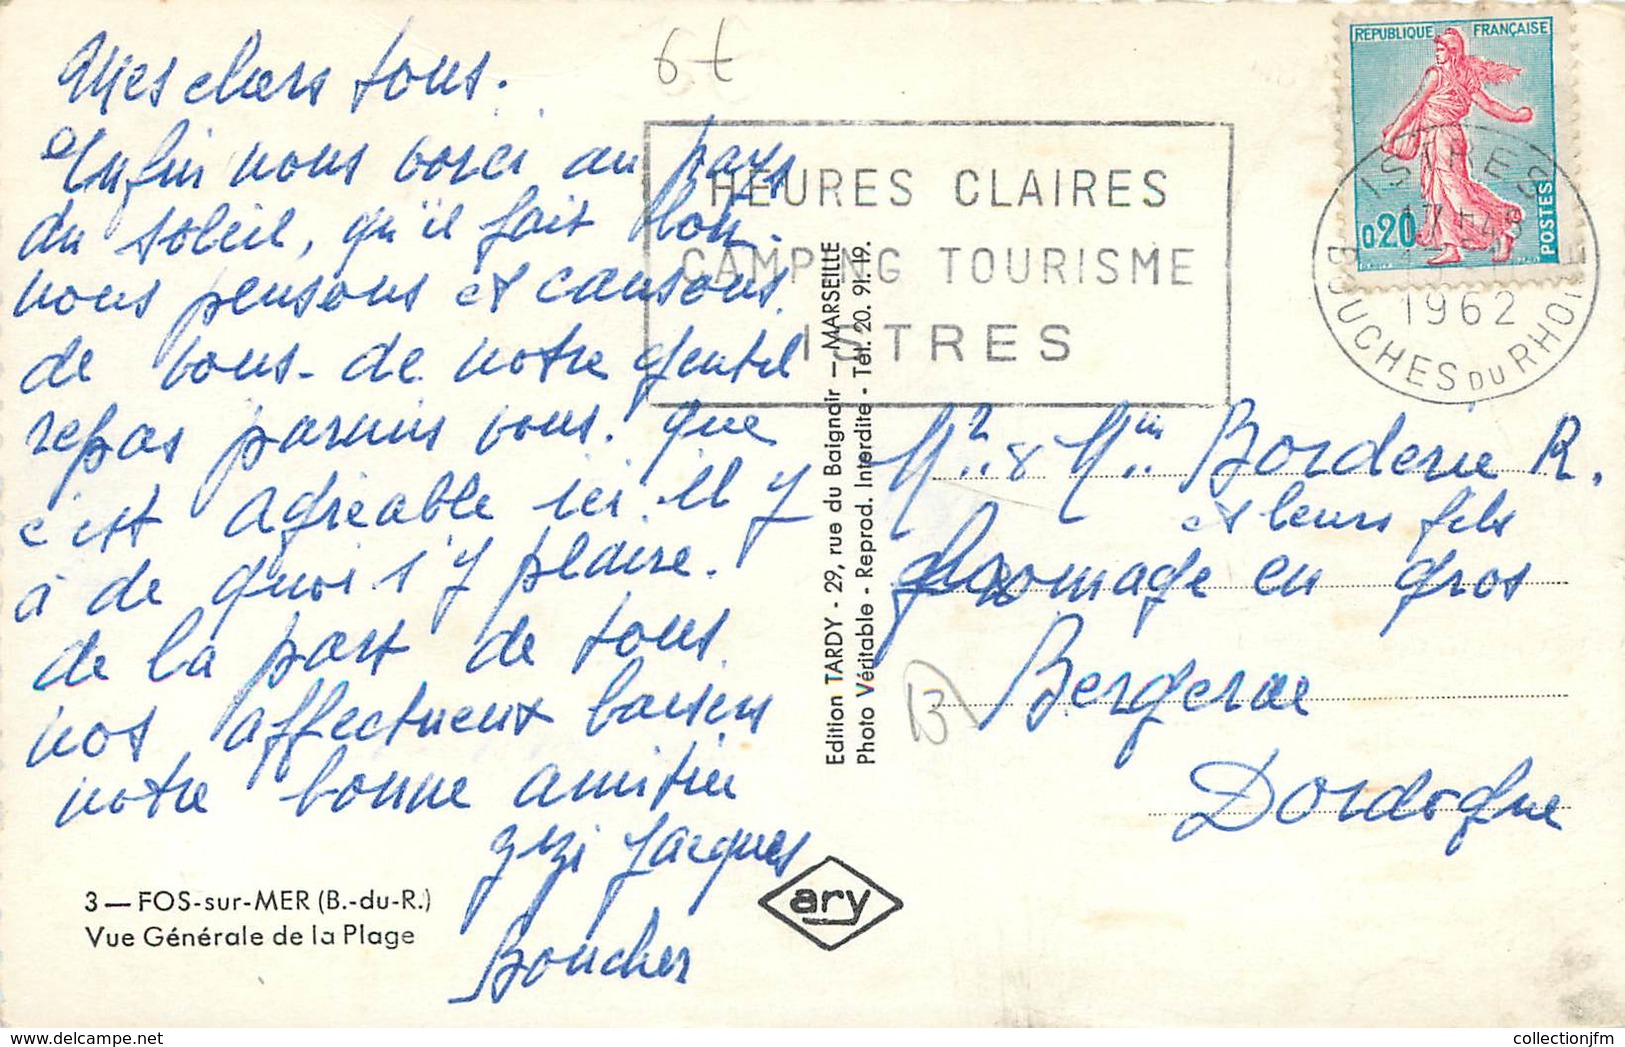 Mes chers tous.
Enfin nous voici au pays
du soleil, qu'il fait bon.
nous pensons et causons
de vous - de notre gentil
repas parmis vous. que
c'est agréable ici. il y
à de quoi s'y plaire.
de la part de tous
nos affectueux baisers
notre bonne amitier
Zizi Jacques
Boucher
3 — FOS-sur-MER (B.-du-R.)
Vue Générale de la Plage
6 t
HEURES CLAIRES
CAMPING TOURISME
ISTRES
Edition TARDY - 29, rue du Baignoir - MARSEILLE
Photo Véritable - Reprod. Interdite - Tél. 20. 91. 19.
ary
RÉPUBLIQUE FRANÇAISE
0,20
POSTES
ISTRES
1962
BOUCHES DU RHONE
Mr & Mme Borderie R.
et leurs fils
fromage en gros
B
Bergerac
Dordogne
collectionjfm